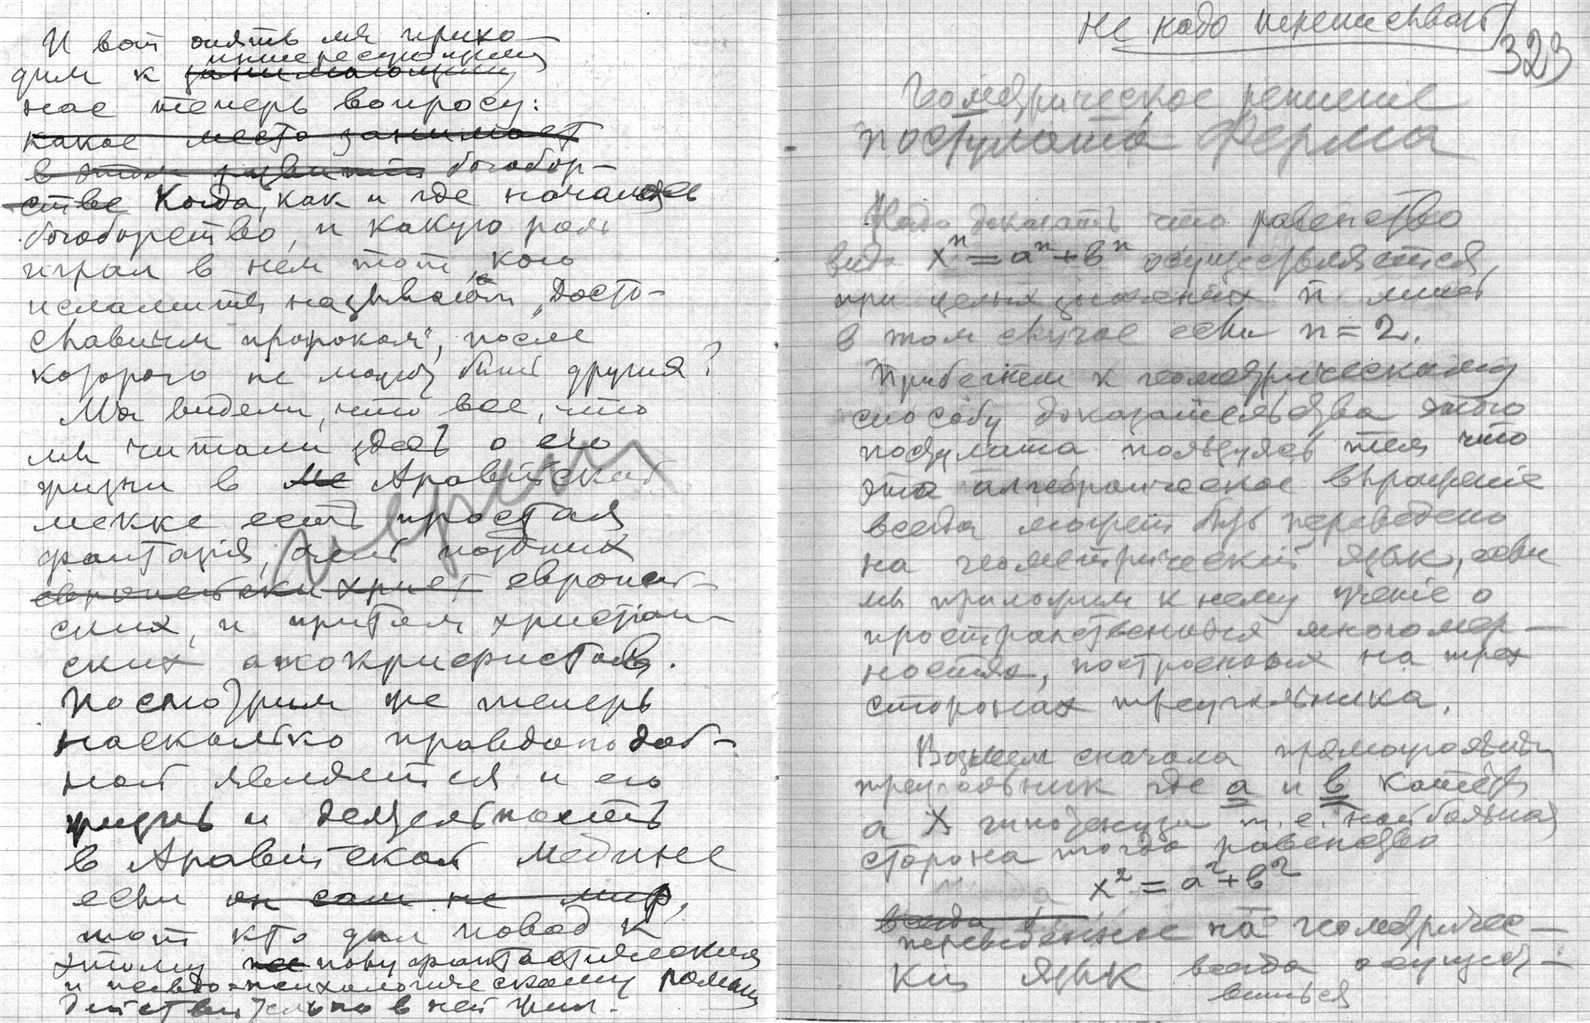 И вот опять мы прихо-
дим к интересующему
занимающему
нас теперь вопросу:
какое место занимает
в этом развитии богобор-
стве Когда, как и где началось
богоборство, и какую роль
играл в нем тот, кого
исламиты называют „Досто-
славным пророком“, после
которого не могут быть другия?
Мы видели, что все, что
мы читали здесь о его
жизни в Ме Аравийской
Мекке есть простая
фантазія, поздних
европейски христ европей-
ских, и притом христіан-
ских апокрифистов.
Посмотрим же теперь
насколько правдоподоб-
ной является и его
жизнь и деятельность
в Аравійской Медине
если он сам не миф,
тот кто дал повод к
этому фантастическия
и псевдо-психологическому роману
действительно в ней жил.
Не надо переписывать
323
Геометрическое решение
постулата Ферма
Надо доказать что равенство
вида xⁿ = aⁿ + bⁿ осуществляется,
при целых значениях n лишь
в том случае если n = 2.
Прибегнем к геометрическому
способу доказательства этого
постулата пользуясь тем что
это алгебраическое выражение
всегда может быть переведено
на геометрический язык, если
мы приложим к нему ученіе о
пространственных многомер-
ностях, построенных на трех
сторонах треугольника.
Возьмем сначала прямоугольный
треугольник где a и b катеты
а X гипотенуза т. е. наибольшая
сторона тогда равенство
x² = a² + b²
всегда
переведенное на геометричес-
кий язык всегда осущест-
виться